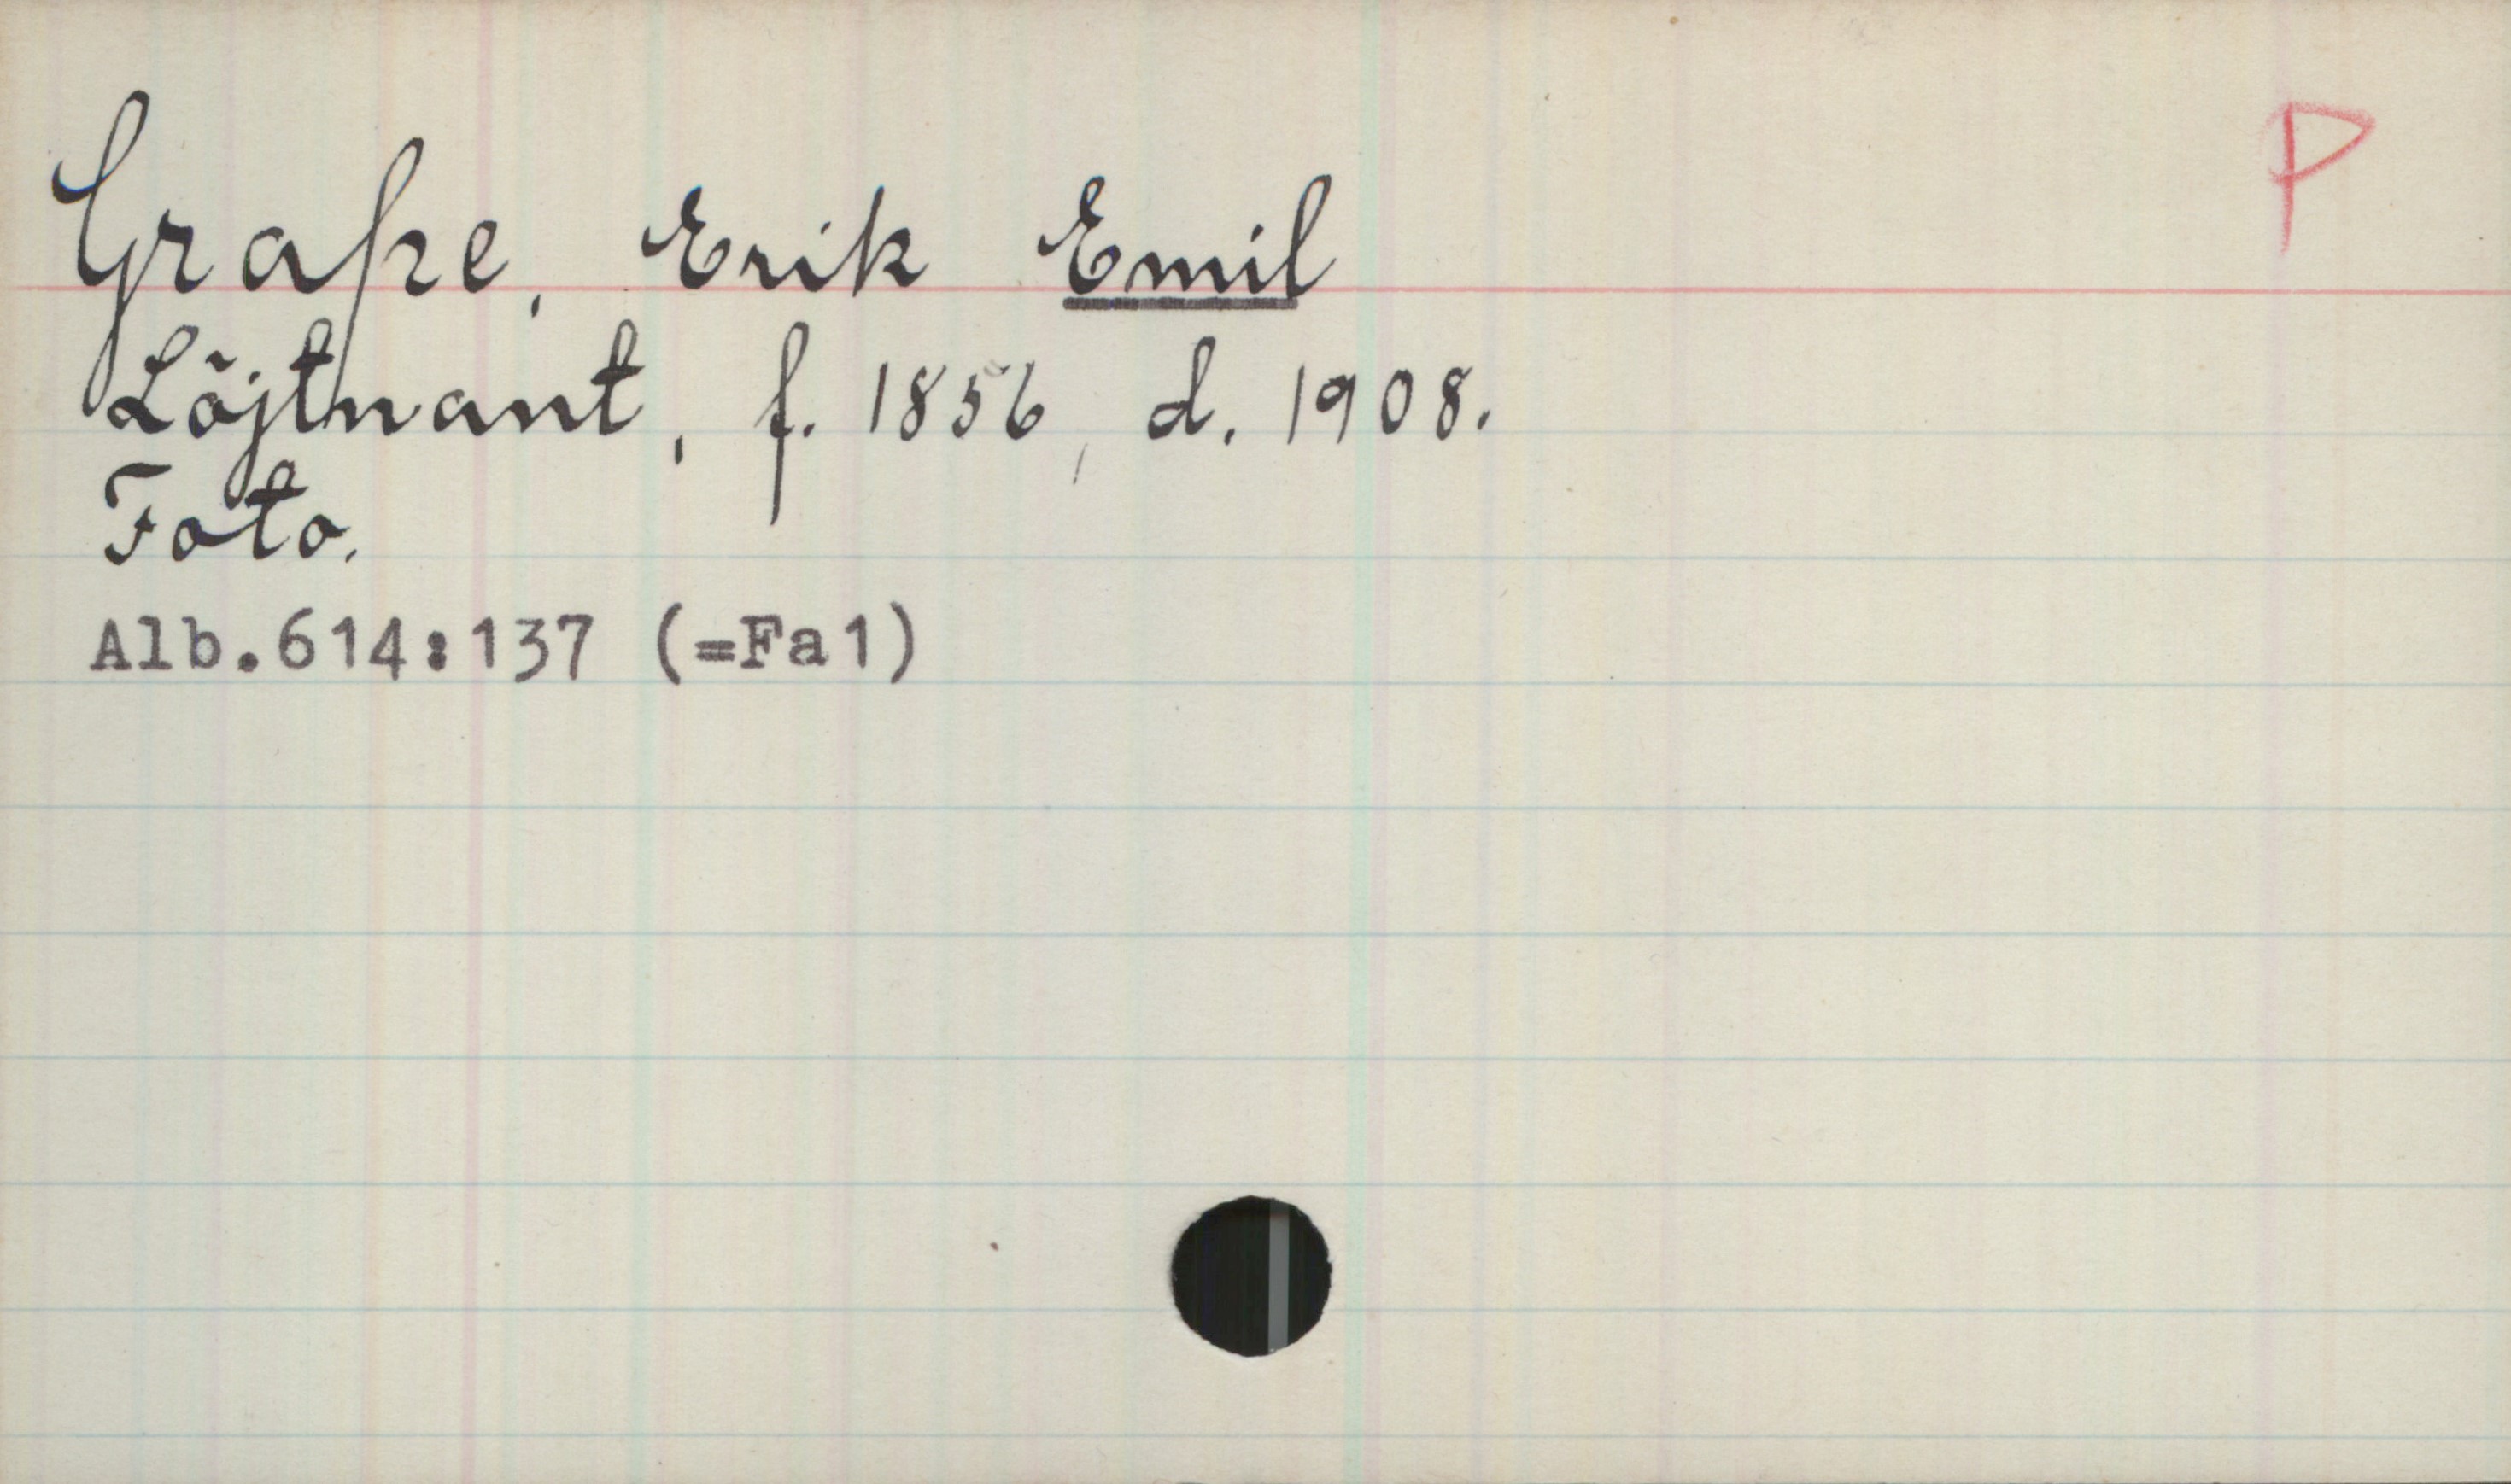 Grape, Erik Emil
P
Löjtnant, f. 1856, d. 1908.
Foto.
Alb.614:137 (=Fa1)